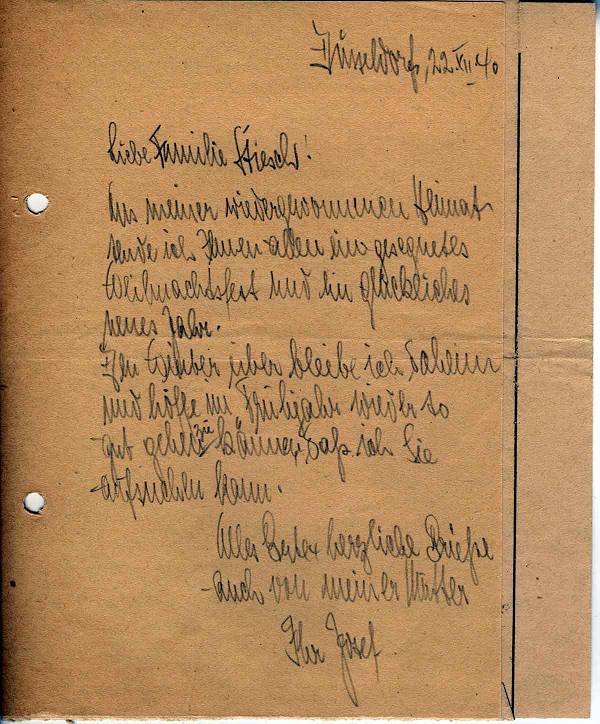 Düsseldorf, 22. XII 40
Liebe Familie
Aus meiner wiedergewonnenen Heimat
sende ich Ihnen allen ein gesegnetes
Weihnachtsfest und ein glückliches
neues Jahr.
Den Winter über bleibe ich daheim
und hoffe im Frühjahr wieder so
gut gehen zu können, daß ich Sie
aufsuchen kann.
Alles Gute herzliche Grüße
auch von meiner Mutter
Ihr Josef.